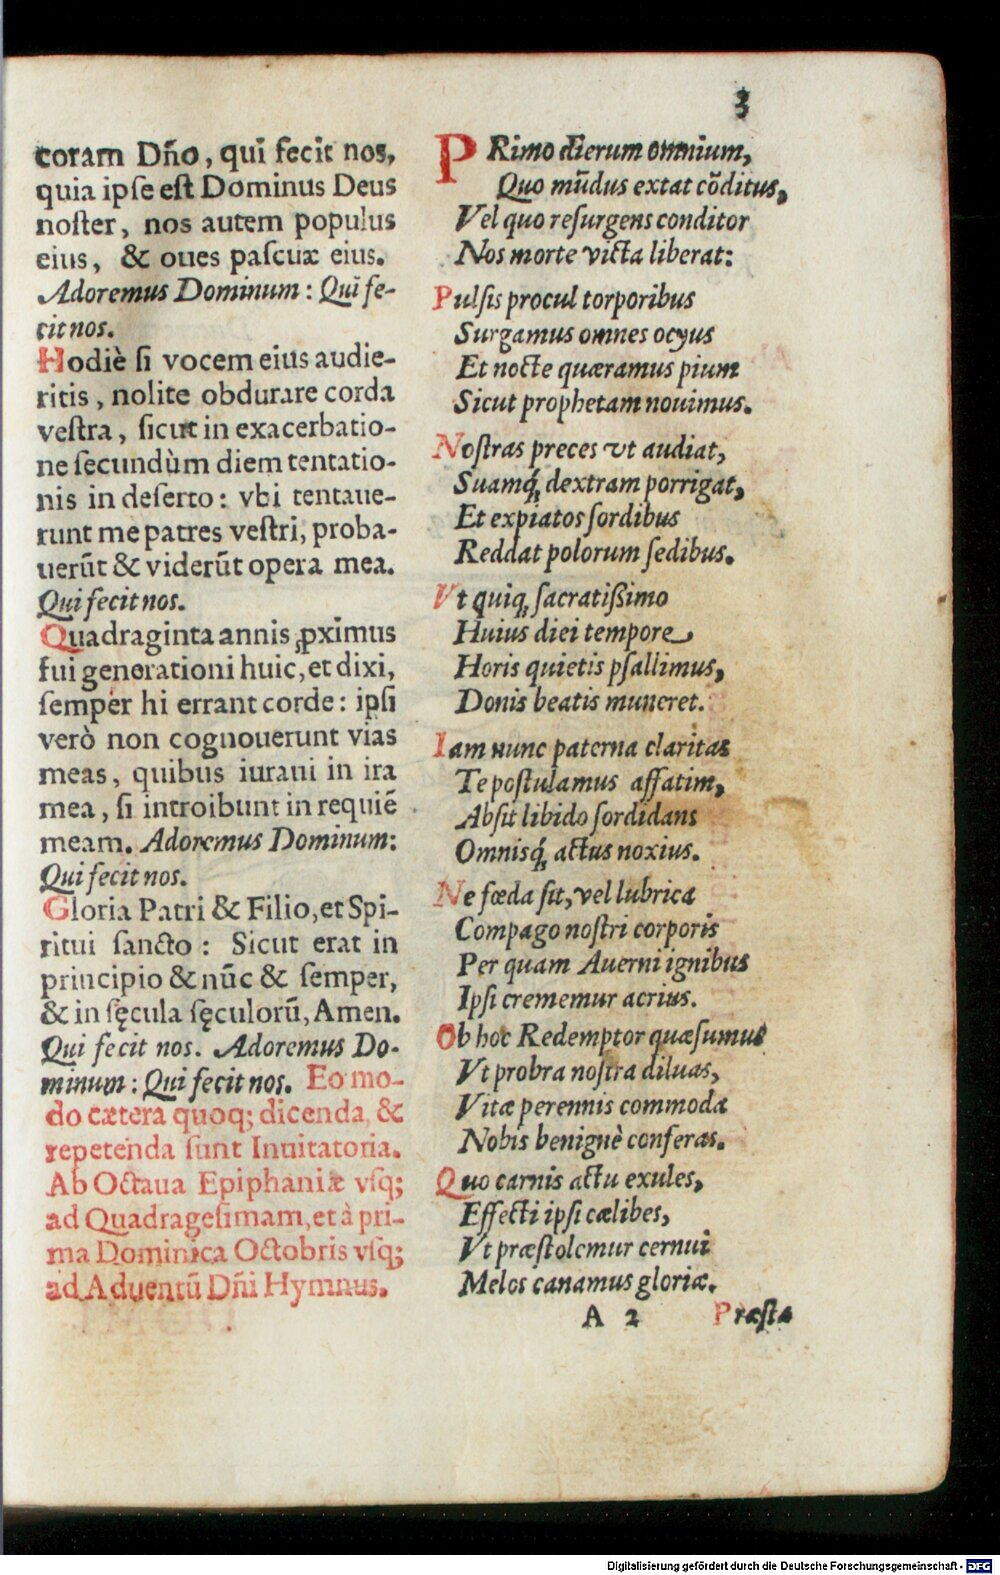 3
coram Dño, qui fecit nos,
quia ipſe eſt Dominus Deus
noſter, nos autem populus
eius, & oues paſcuæ eius.
Adoremus Dominum: Qui fe-
cit nos.
Hodiè ſi vocem eius audie-
ritis, nolite obdurare corda
veſtra, ſicut in exacerbatio-
ne ſecundùm diem tentatio-
nis in deſerto: vbi tentaue-
runt me patres veſtri, proba-
uerũt & viderũt opera mea.
Qui fecit nos.
Quadraginta annis ꝓximus
fui generationi huic, et dixi,
ſemper hi errant corde: ipſi
verò non cognouerunt vias
meas, quibus iuraui in ira
mea, ſi introibunt in requiẽ
meam. Adoremus Dominum:
Qui fecit nos.
Gloria Patri & Filio, et Spi-
ritui ſancto: Sicut erat in
principio & nũc & ſemper,
& in ſęcula ſęculorũ, Amen.
Qui fecit nos. Adoremus Do-
minum: Qui fecit nos. Eo mo-
do cætera quoq; dicenda, &
repetenda ſunt Inuitatoria.
Ab Octaua Epiphaniæ vſq;
ad Quadrageſimam, et à pri-
ma Dominica Octobris vſq;
ad Aduentũ Dñi Hymnus.
PRimo dierum omnium,
Quo mũdus extat cõditus,
Vel quo reſurgens conditor
Nos morte victa liberat:
Pulſis procul torporibus
Surgamus omnes ocyus
Et nocte quæramus pium
Sicut prophetam nouimus.
Noſtras preces vt audiat,
Suamq́; dextram porrigat,
Et expiatos ſordibus
Reddat polorum ſedibus.
Vt quiq; ſacratißimo
Huius diei tempore
Horis quietis pſallimus,
Donis beatis muneret.
Iam nunc paterna claritas
Te poſtulamus affatim,
Abſit libido ſordidans
Omnisq́; actus noxius.
Ne fœda ſit, vel lubrica
Compago noſtri corporis
Per quam Auerni ignibus
Ipſi crememur acrius.
Ob hoc Redemptor quæſumus
Vt probra noſtra diluas,
Vitæ perennis commoda
Nobis benignè conferas.
Quo carnis actu exules,
Effecti ipſi cælibes,
Vt præſtolemur cernui
Melos canamus gloriæ.
A 2 Præſta
Digitalisierung gefördert durch die Deutsche Forschungsgemeinschaft - DFG